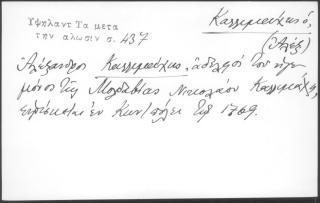 Υψηλαντ Τα μετα
την αλωσιν σ. 437
Καλλιμάχης ὁ,
(Ἀλέξ)
Ἀλέξανδρος Καλλιμάχης, ἀδελφὸς τοῦ ἡγε-
μόνος τῆς Μολδαβίας Νικολάου Καλλιμάχη,
ἐν Κων/πόλει τῷ 1769.